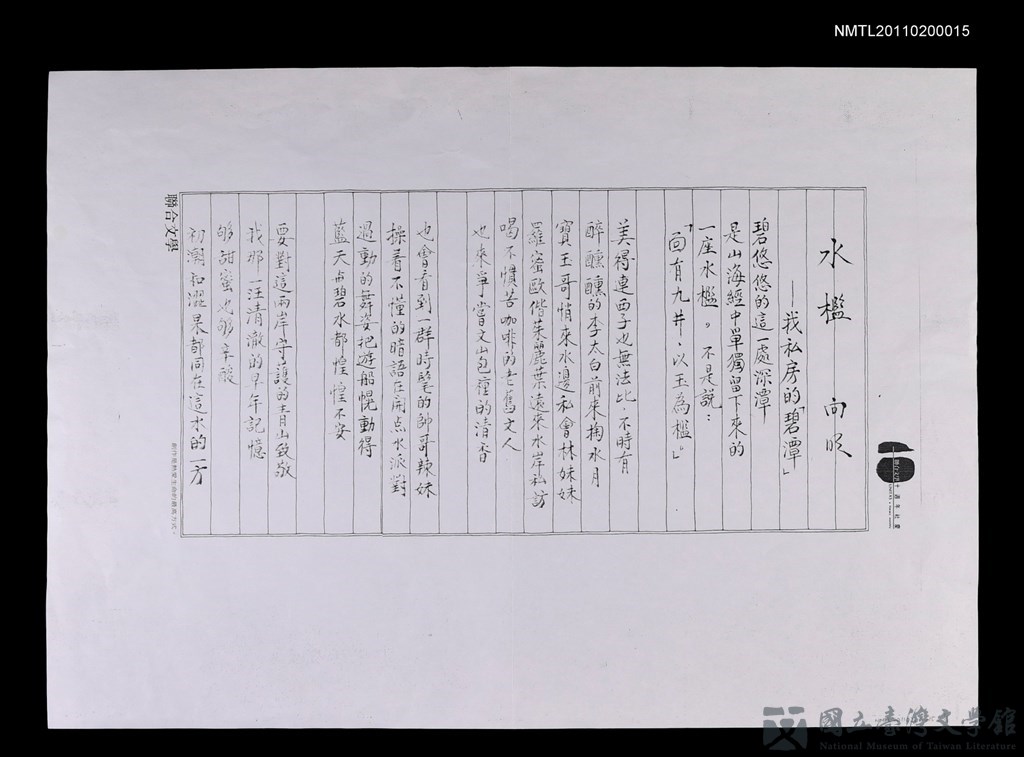 NMTL20110200015
水檻 向明
——我私房的「碧潭」
碧悠悠的這一處深潭
是山海經中單獨留下來的
一座水檻。不是說：
「面有九井，以玉為檻。」
美得連西子也無法比，不時有
醉醺醺的李太白前來掬水月
寶玉哥悄來水邊私會林妹妹
羅密歐偕茱麗葉遠來水岸私訪
喝不慣苦咖啡的老舊文人
也來爭嘗文山包種的清香
也會看到一群時髦的帥哥辣妹
操著不懂的暗語在開点水派對
過動的舞姿把遊船幌動得
藍天與碧水都惶惶不安
要對這兩岸守護的青山致敬
我那一汪清澈的早年記憶
够甜蜜也够辛酸
初潮和澀果都同在這水的一方
聯合文學
創作是熱愛生命的最高方式。
國立臺灣文學館
National Museum of Taiwan Literature